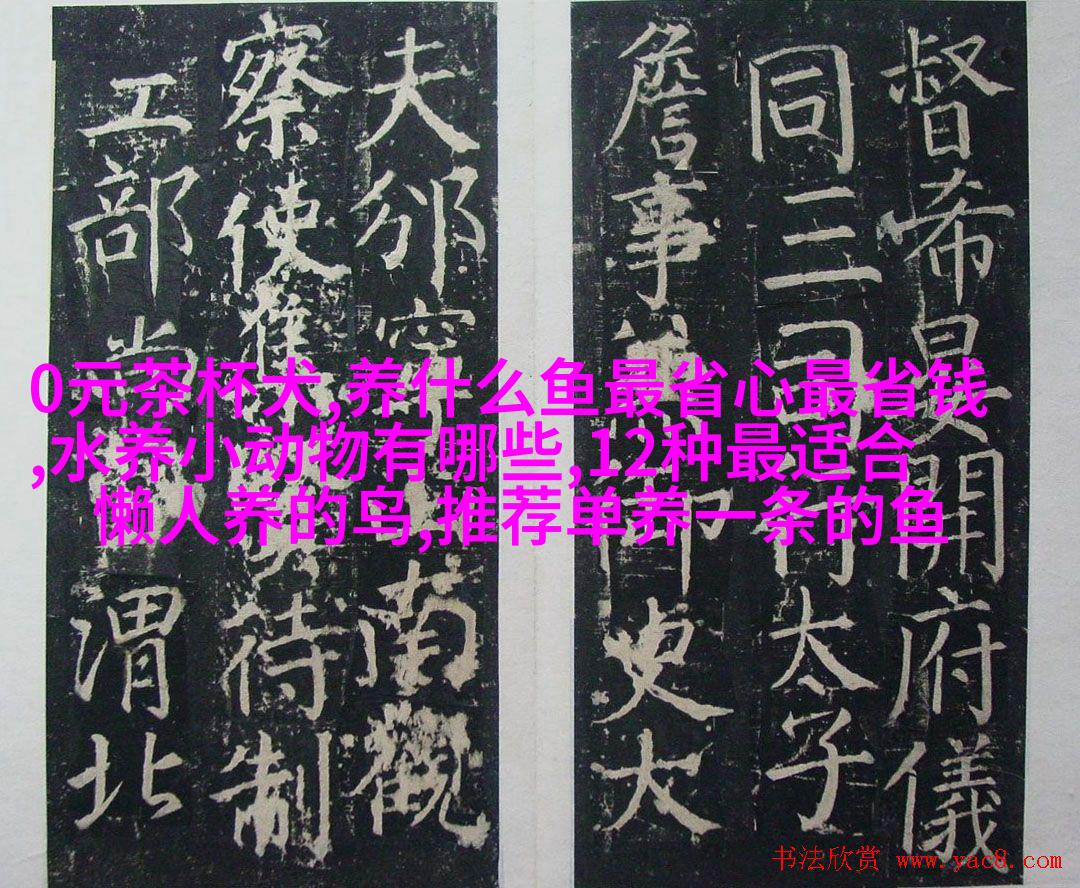 0元茶杯犬,养什么鱼最省心最省钱
,水养小动物有哪些,12种最适合
懒人养的鸟,推荐单养一条的鱼
督希開府儀
同三司太子
詹事兼御史大
夫邠寧南觀
察使待制
工部尚渭北
书法欣赏 www.yac8.com